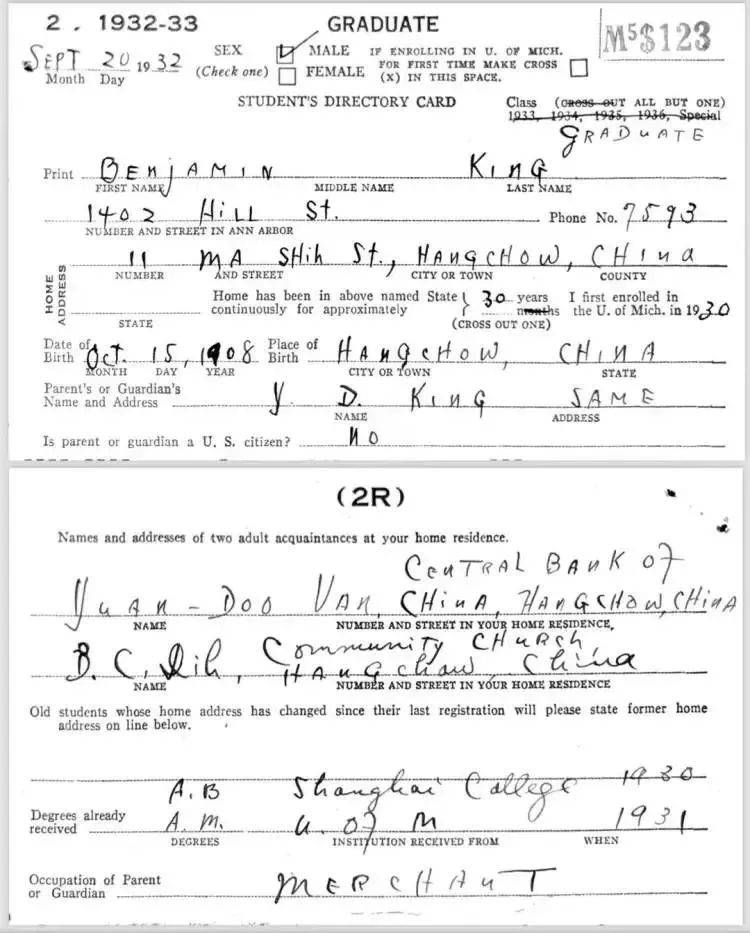 2 . 1932-33 GRADUATE
SEPT 20 1932 SEX MALE IF ENROLLING IN U. OF MICH. M5$123
Month Day (Check one) FEMALE FOR FIRST TIME MAKE CROSS
(X) IN THIS SPACE.
STUDENT'S DIRECTORY CARD Class (CROSS OUT ALL BUT ONE)
1933, 1934, 1935, 1936, Special
GRADUATE
Print BENJAMIN KING
FIRST NAME MIDDLE NAME LAST NAME
1402 HILL St. Phone No. 7593
NUMBER AND STREET IN ANN ARBOR
11 MA SHIH St., HANGCHOW, CHINA
NUMBER AND STREET CITY OR TOWN COUNTY
HOME ADDRESS
Home has been in above named State 30 years I first enrolled in
continuously for approximately months the U. of Mich. in 1930
STATE (CROSS OUT ONE)
Date of Birth OCT. 15, 1908 Place of Birth HANGCHOW, CHINA
MONTH DAY YEAR CITY OR TOWN STATE
Parent's or Guardian's
Name and Address Y. D. KING SAME
NAME ADDRESS
Is parent or guardian a U. S. citizen? NO
(2R)
Names and addresses of two adult acquaintances at your home residence.
CENTRAL BANK OF
YUAN-DOO VAN, CHINA, HANGCHOW, CHINA
NAME NUMBER AND STREET IN YOUR HOME RESIDENCE,
Community CHURCH,
B. C. Dih, HANGchow, China
NAME NUMBER AND STREET IN YOUR HOME RESIDENCE
Old students whose home address has changed since their last registration will please state former home
address on line below.
A.B Shanghai College 1930
Degrees already
received A.M. U. OF M 1931
DEGREES INSTITUTION RECEIVED FROM WHEN
Occupation of Parent
or Guardian MERCHANT